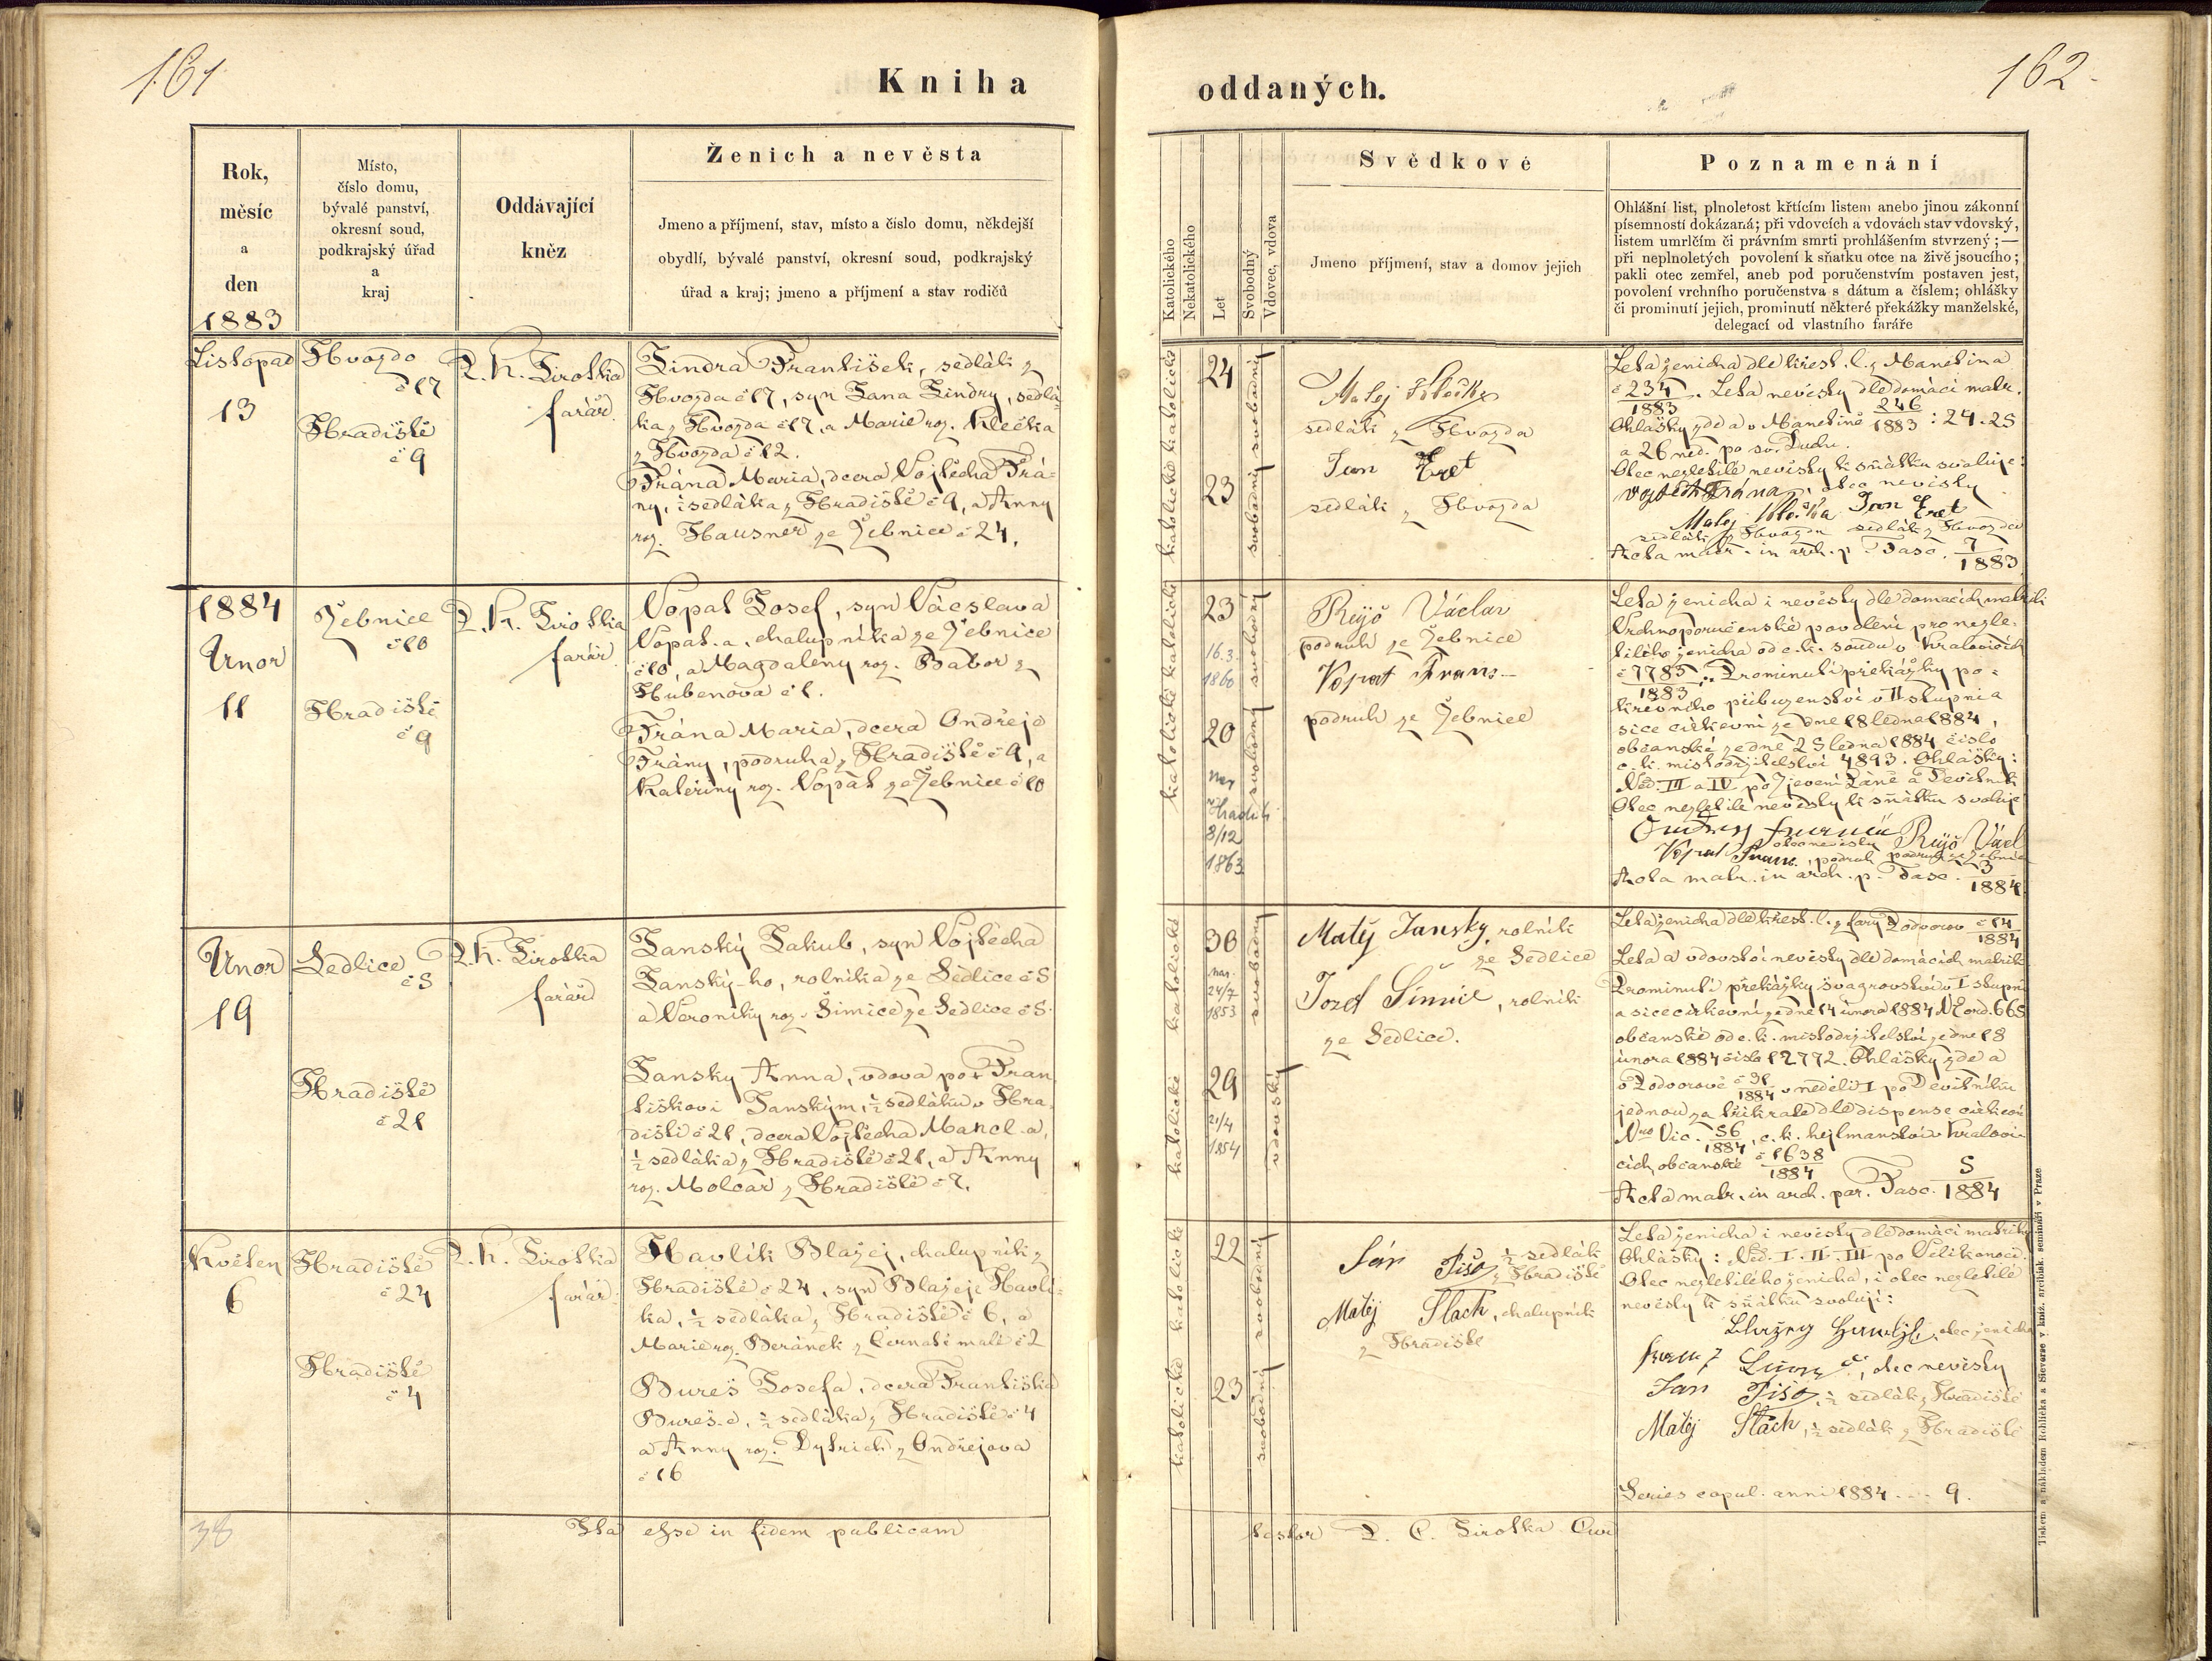 161
Kniha
Rok,
měsíc
a
den
1883
Místo,
číslo domu,
bývalé panství,
okresní soud,
podkrajský úřad
a
kraj
Oddávající
kněz
Ženich a nevěsta
Jmeno a příjmení, stav, místo a číslo domu, někdejší
obydlí, bývalé panství, okresní soud, podkrajský
úřad a kraj; jmeno a příjmení a stav rodičů
Listopad
13
Hvozdo
č 17
Hradiště
č 9
P. K. Jirotka
farář
Jindra František, sedlák z
Hvozda č 17, syn Jana Jindry, sedlá-
ka z Hvozda č 17, a Marie roz. Klečka
z Hvozda č 12.
Frána Maria, dcera Vojtěcha Frá-
ny, ½ sedláka z Hradiště č 9, a Anny
roz. Hausner ze Žebnice č 24.
1884
Únor
11
Žebnice
č 10
Hradiště
č 9
P. K. Jirotka
farář
Vopat Josef, syn Václava
Vopat-a, chalupníka ze Žebnice
č 10, a Magdaleny roz. Babor z
Hubenova č 1.
Frána Maria, dcera Ondřeje
Frány, podruha z Hradiště č 9, a
Kateřiny roz. Vopat ze Žebnice č 10
Únor
19
Sedlice
č 5
Hradiště
č 21
P. K. Jirotka
farář
Janský Jakub, syn Vojtěcha
Janský-ho, rolníka ze Sedlice č 5
a Veroniky roz. Šimice ze Sedlice č 5.
Janský Anna, vdova po Fran
tiškovi Janským, ½ sedláku v Hra
dišti č 21, dcera Vojtěcha Mancl-a,
½ sedláka z Hradiště č 21, a Anny
roz. Molcar z Hradiště č 7.
Květen
6
Hradiště
č 24
Hradiště
č 4
P. K. Jirotka
farář
Havlík Blažej, chalupník z
Hradiště č 24, syn Blažeje Havlí-
ka, ½ sedláka z Hradiště č 6, a
Marie roz. Beránek z Černotě malé č 2
Bureš Josefa, dcera Františka
Bureš-e, ½ sedláka z Hradiště č 4
a Anny roz. Dytrich z Ondřejova
č 16
Ita esse in fidem publicam
162
oddaných.
Katolického
Nekatolického
Let
Svobodný
Vdovec, vdova
Svědkové
Jmeno příjmení, stav a domov jejich
Poznamenání
Ohlášní list, plnoletost křtícím listem anebo jinou zákonní
písemností dokázaná; při vdovcích a vdovách stav vdovský,
listem umrlčím či právním smrti prohlášením stvrzený; —
při neplnoletých povolení k sňatku otce na živě jsoucího;
pakli otec zemřel, aneb pod poručenstvím postaven jest,
povolení vrchního poručenstva s dátum a číslem; ohlášky
či prominutí jejich, prominutí některé překážky manželské,
delegací od vlastního faráře
katolické katolické
24
23
svobodný svobodný
Matej Klečka
sedlák z Hvozda
Jan Eret
sedlák z Hvozda
Leta ženicha dle křest. l. z Manetina
č 234/1883. Leta nevěsty dle domácí matr.
Ohlášky zde a v Manetině 246/1883 : 24. 25
a 26 ned. po sv. Duchu.
Otec nezletilé nevěsty k sňatku svoluje:
Vojtěch Frána, otec nevěsty
Matej Klečka Jan Eret
sedlák z Hvozda sedlák z Hvozda
Acta matr. in arch. p. Fasc. 7/1883
katolické katolické
23
16. 3.
1860
20
nar
v Hradišti
8/12
1863
svobodný svobodný
Rryjš Václav
podruh ze Žebnice
Vopat Franc
podruh ze Žebnice
Leta ženicha i nevěsty dle domácích matrik
Vrchnoporučenské povolení pro nezle-
tilého ženicha od c. k. soudu v Kralovicích
č 7785/1883. Prominutí překážky po-
krevního příbuzenství v II stupni a
sice církevní ze dne 18 ledna 1884,
občanské ze dne 25 ledna 1884 číslo
c. k. místodržitelství 4893. Ohlášky:
Ned. III a IV po Zjevení Páně a Devítník
Otec nezletilé nevěsty k sňatku svoluje
otec nevěsty
Vopat Franc, podruh podruh ze Žebnice
Acta matr. in arch. p. Fasc. 3/1884
katolické katolické
30
nar.
24/7
1853
29
21/4
1854
svobodný
vdovský
Matěj Janský, rolník
ze Sedlice
Jozef Šimic, rolník
ze Sedlice.
Leta ženicha dle křest. l. z fary Podvorov č 14/1884
Leta a vdovství nevěsty dle domácích matrik
Prominutí překážky švagrovství v I stupni
a sice církevní ze dne 14 února 1884 N Eord. 665
občanské od c. k. místodržitelství ze dne 18
února 1884 číslo 12772. Ohlášky zde a
v Podvorově č 31/1884 v neděli I po Devítníku
jednou za třikráte dle dispense církevní
Nro Vic. 56/1884, c. k. hejtmanství v Kralovi-
cích občanské č 1638/1884
Acta matr. in arch. par. Fasc. 5/1884
katolické katolické
22
23
svobodný svobodný
Ján Piša ½ sedlák
z Hradiště
Matěj Šlach, chalupník
z Hradiště
Leta ženicha i nevěsty dle domácí matriky
Ohlášky: Ned. I. II. III po Velikonoci.
Otec nezletilého ženicha, i otec nezletilé
nevěsty k sňatku svolují:
otec ženicha
otec nevěsty
Ján Piša, ½ sedlák z Hradiště
Matěj Šlach, ½ sedlák z Hradiště
Series copul. anni 1884 . . . 9.
testor P. C. Jirotka
Tiskem a nákladem Rohlíčka a Sieverse v kníž. arcibisk. semináři v Praze